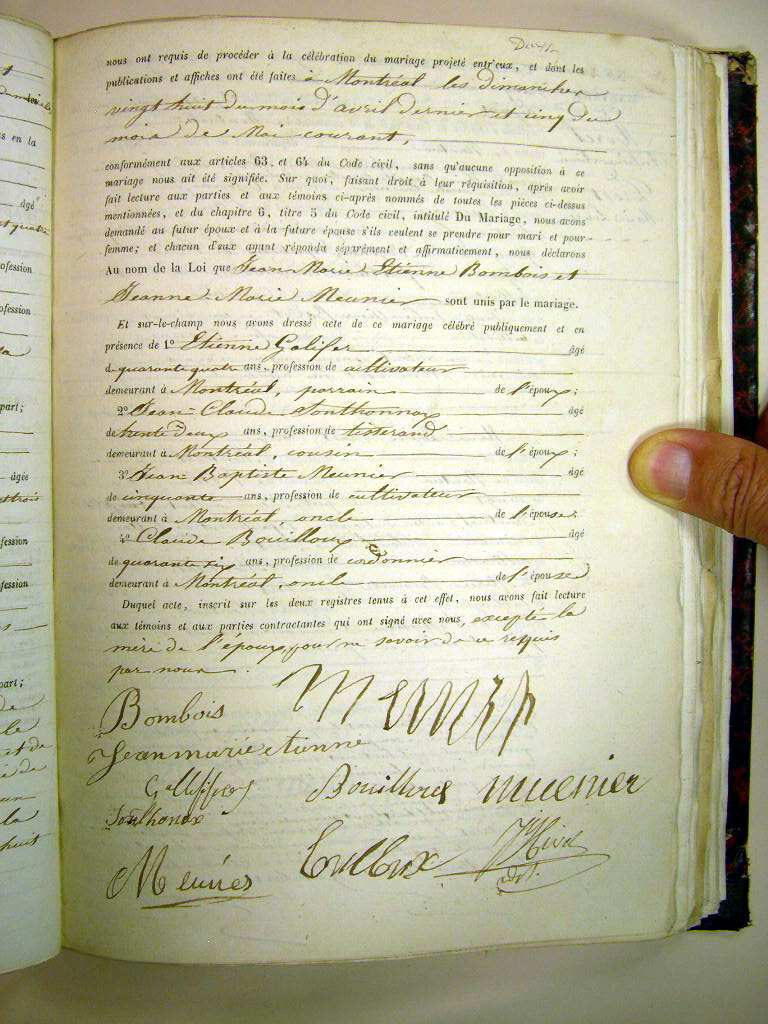 nous ont requis de procéder à la célébration du mariage projeté entr'eux, et dont les
publications et affiches ont été faites à Montréal les dimanches
vingt huit du mois d'avril dernier et cinq du
mois de Mai courant,
conformément aux articles 63, et 64 du Code civil, sans qu'aucune opposition à ce
mariage nous ait été signifiée. Sur quoi, faisant droit à leur réquisition, après avoir
fait lecture aux parties et aux témoins ci-après nommés de toutes les pièces ci-dessus
mentionnées, et du chapitre 6, titre 5 du Code civil, intitulé Du Mariage, nous avons
demandé au futur époux et à la future épouse s'ils veulent se prendre pour mari et pour
femme; et chacun d'eux ayant répondu séparément et affirmativement, nous déclarons
Au nom de la Loi que Jean Marie Etienne Bombois et
Jeanne-Marie Meunier sont unis par le mariage.
Et sur-le-champ nous avons dressé acte de ce mariage célébré publiquement et en
présence de 1° Etienne Galifer âgé
de quarante quatre ans, profession de cultivateur
demeurant à Montréal, parrain de l'époux;
2° Jean-Claude Sonthonnax âgé
de trente deux ans, profession de tisserand
demeurant à Montréal, cousin de l'époux;
3° Jean Baptiste Meunier âgé
de cinquante ans, profession de cultivateur
demeurant à Montréal, oncle de l'épouse;
4° Claude Bouilloux âgé
de quarante six ans, profession de cordonnier
demeurant à Montréal, oncle de l'épouse
Duquel acte, inscrit sur les deux registres tenus à cet effet, nous avons fait lecture
aux témoins et aux parties contractantes qui ont signé avec nous, excepté la
mère de l'époux, pour ne savoir de ce requis
par nous.
Bombois
Jean marie etienne
Bouilloux munier
Sonthonax
Meunier